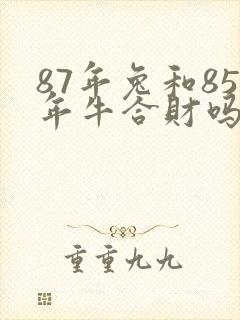 87年兔和85
年牛合財吗
重重九九